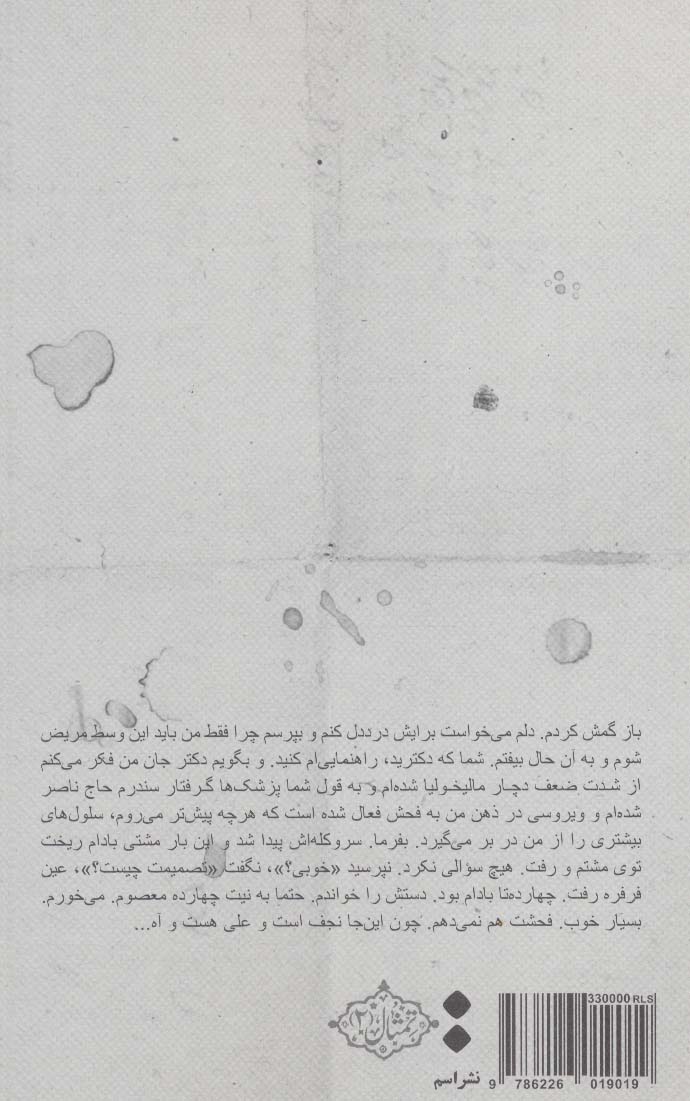 باز گمش کردم. دلم می‌خواست برایش درددل کنم و بپرسم چرا فقط من باید این وسط مریض
شوم و به آن حال بیفتم. شما که دکترید، راهنمایی‌ام کنید. و بگویم دکتر جان من فکر می‌کنم
از شدت ضعف دچار مالیخولیا شده‌ام و به قول شما پزشک‌ها گرفتار سندرم حاج ناصر
شده‌ام و ویروسی در ذهن من به فحش فعال شده است که هرچه پیش‌تر می‌روم، سلول‌های
بیشتری را از من در بر می‌گیرد. بفرما. سروکله‌اش پیدا شد و این بار مشتی بادام ریخت
توی مشتم و رفت. هیچ سؤالی نکرد. نپرسید «خوبی؟»، نگفت «تصمیمت چیست؟»، عین
فرفره رفت. چهارده‌تا بادام بود. دستش را خواندم. حتما به نیت چهارده معصوم. می‌خورم.
بسیار خوب. فحشت هم نمی‌دهم. چون این‌جا نجف است و علی هست و آه...
330000 RLS
تمثال (۲)
نشر اسم
9 786226 019019